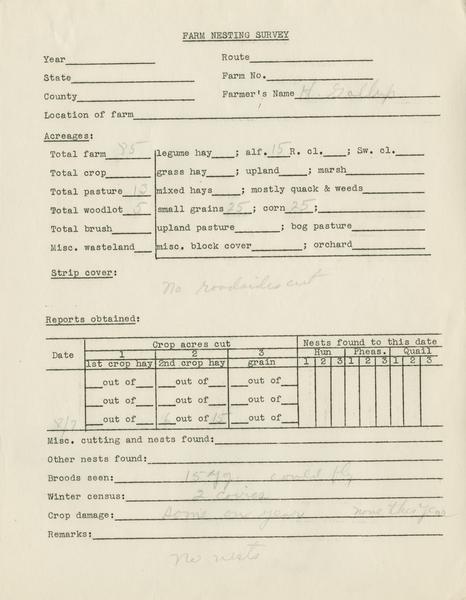 FARM NESTING SURVEY
Year Route
State Farm No.
County Farmer's Name H. Gallup
Location of farm
Acreages:
Total farm 85 legume hay ; alf. 15 R. cl. ; Sw. cl.
Total crop grass hay ; upland ; marsh
Total pasture 13 mixed hays ; mostly quack & weeds
Total woodlot 5 small grains 25 ; corn 25 ;
Total brush upland pasture ; bog pasture
Misc. wasteland misc. block cover ; orchard
Strip cover:
No roadsides cut
Reports obtained:
Crop acres cut Nests found to this date
Date 1 2 3 Hun Pheas. Quail
1st crop hay 2nd crop hay grain 1 2 3 1 2 3 1 2 3
out of out of out of
out of out of out of
8/7 out of 6 out of 15 out of
Misc. cutting and nests found:
Other nests found:
Broods seen: 15 yg could fly
Winter census: 2 covies
Crop damage: Some on year none this year
Remarks:
No nests